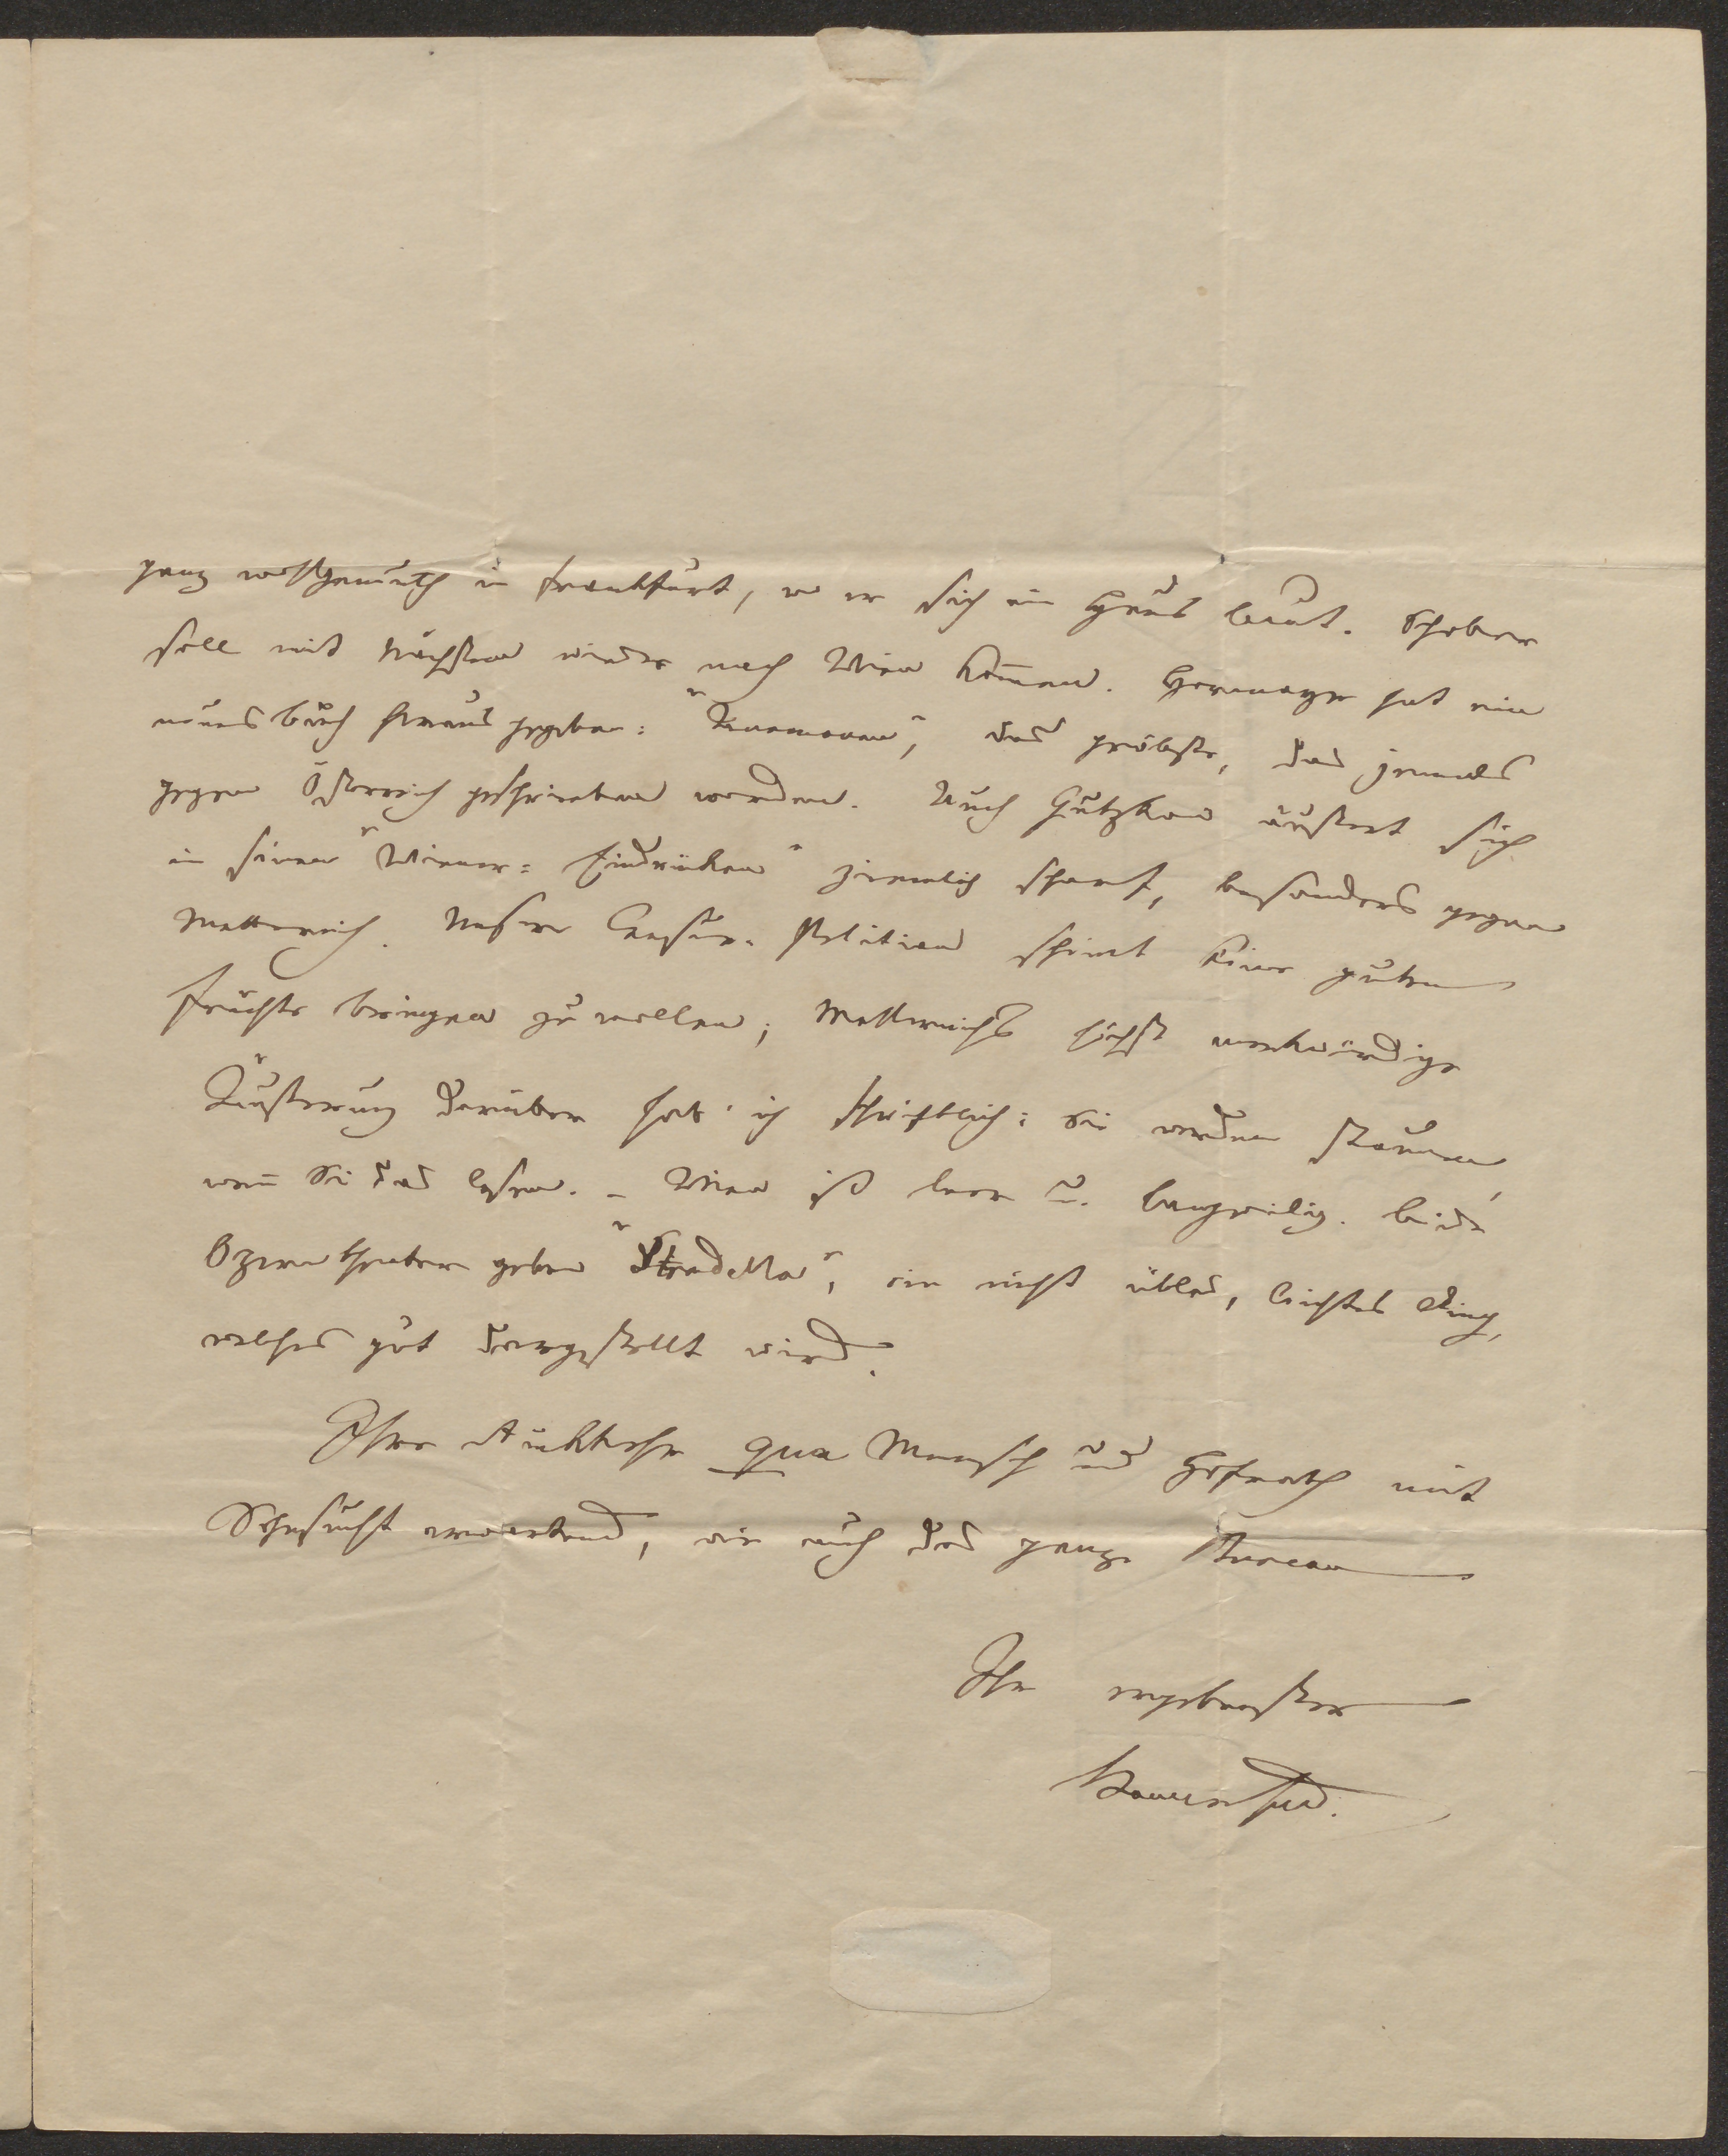 ganz wohlgemuth in Frankfurt, wo er sich ein Haus baut. Schober
soll mit Nächstem wieder nach Wien kommen. Hormayr hat ein
neues Buch herausgegeben: "Anemonen", das gröbste, das jemals
gegen Österreich geschrieben worden. Auch Gutzkow äußert sich
in seinen "Wiener=Eindrücken" ziemlich scharf, besonders gegen
Metternich. Unsere Censur-Petition scheint keine guten
Früchte bringen zu wollen; Metternichs höchst merkwürdige
Äußerung darüber hab' ich schriftlich: Sie werden staunen,
wenn Sie das lesen. – Wien ist leer u. langweilig. Beide
Operntheater geben "Stradella", ein nicht übles, leichtes Ding,
welches gut dargestellt wird.
Ihre Rückkehr qua Mensch und Hofrath mit
Sehnsucht erwartend, wie auch das ganze Bureau
Ihr ergebenster
Bauernfeld.